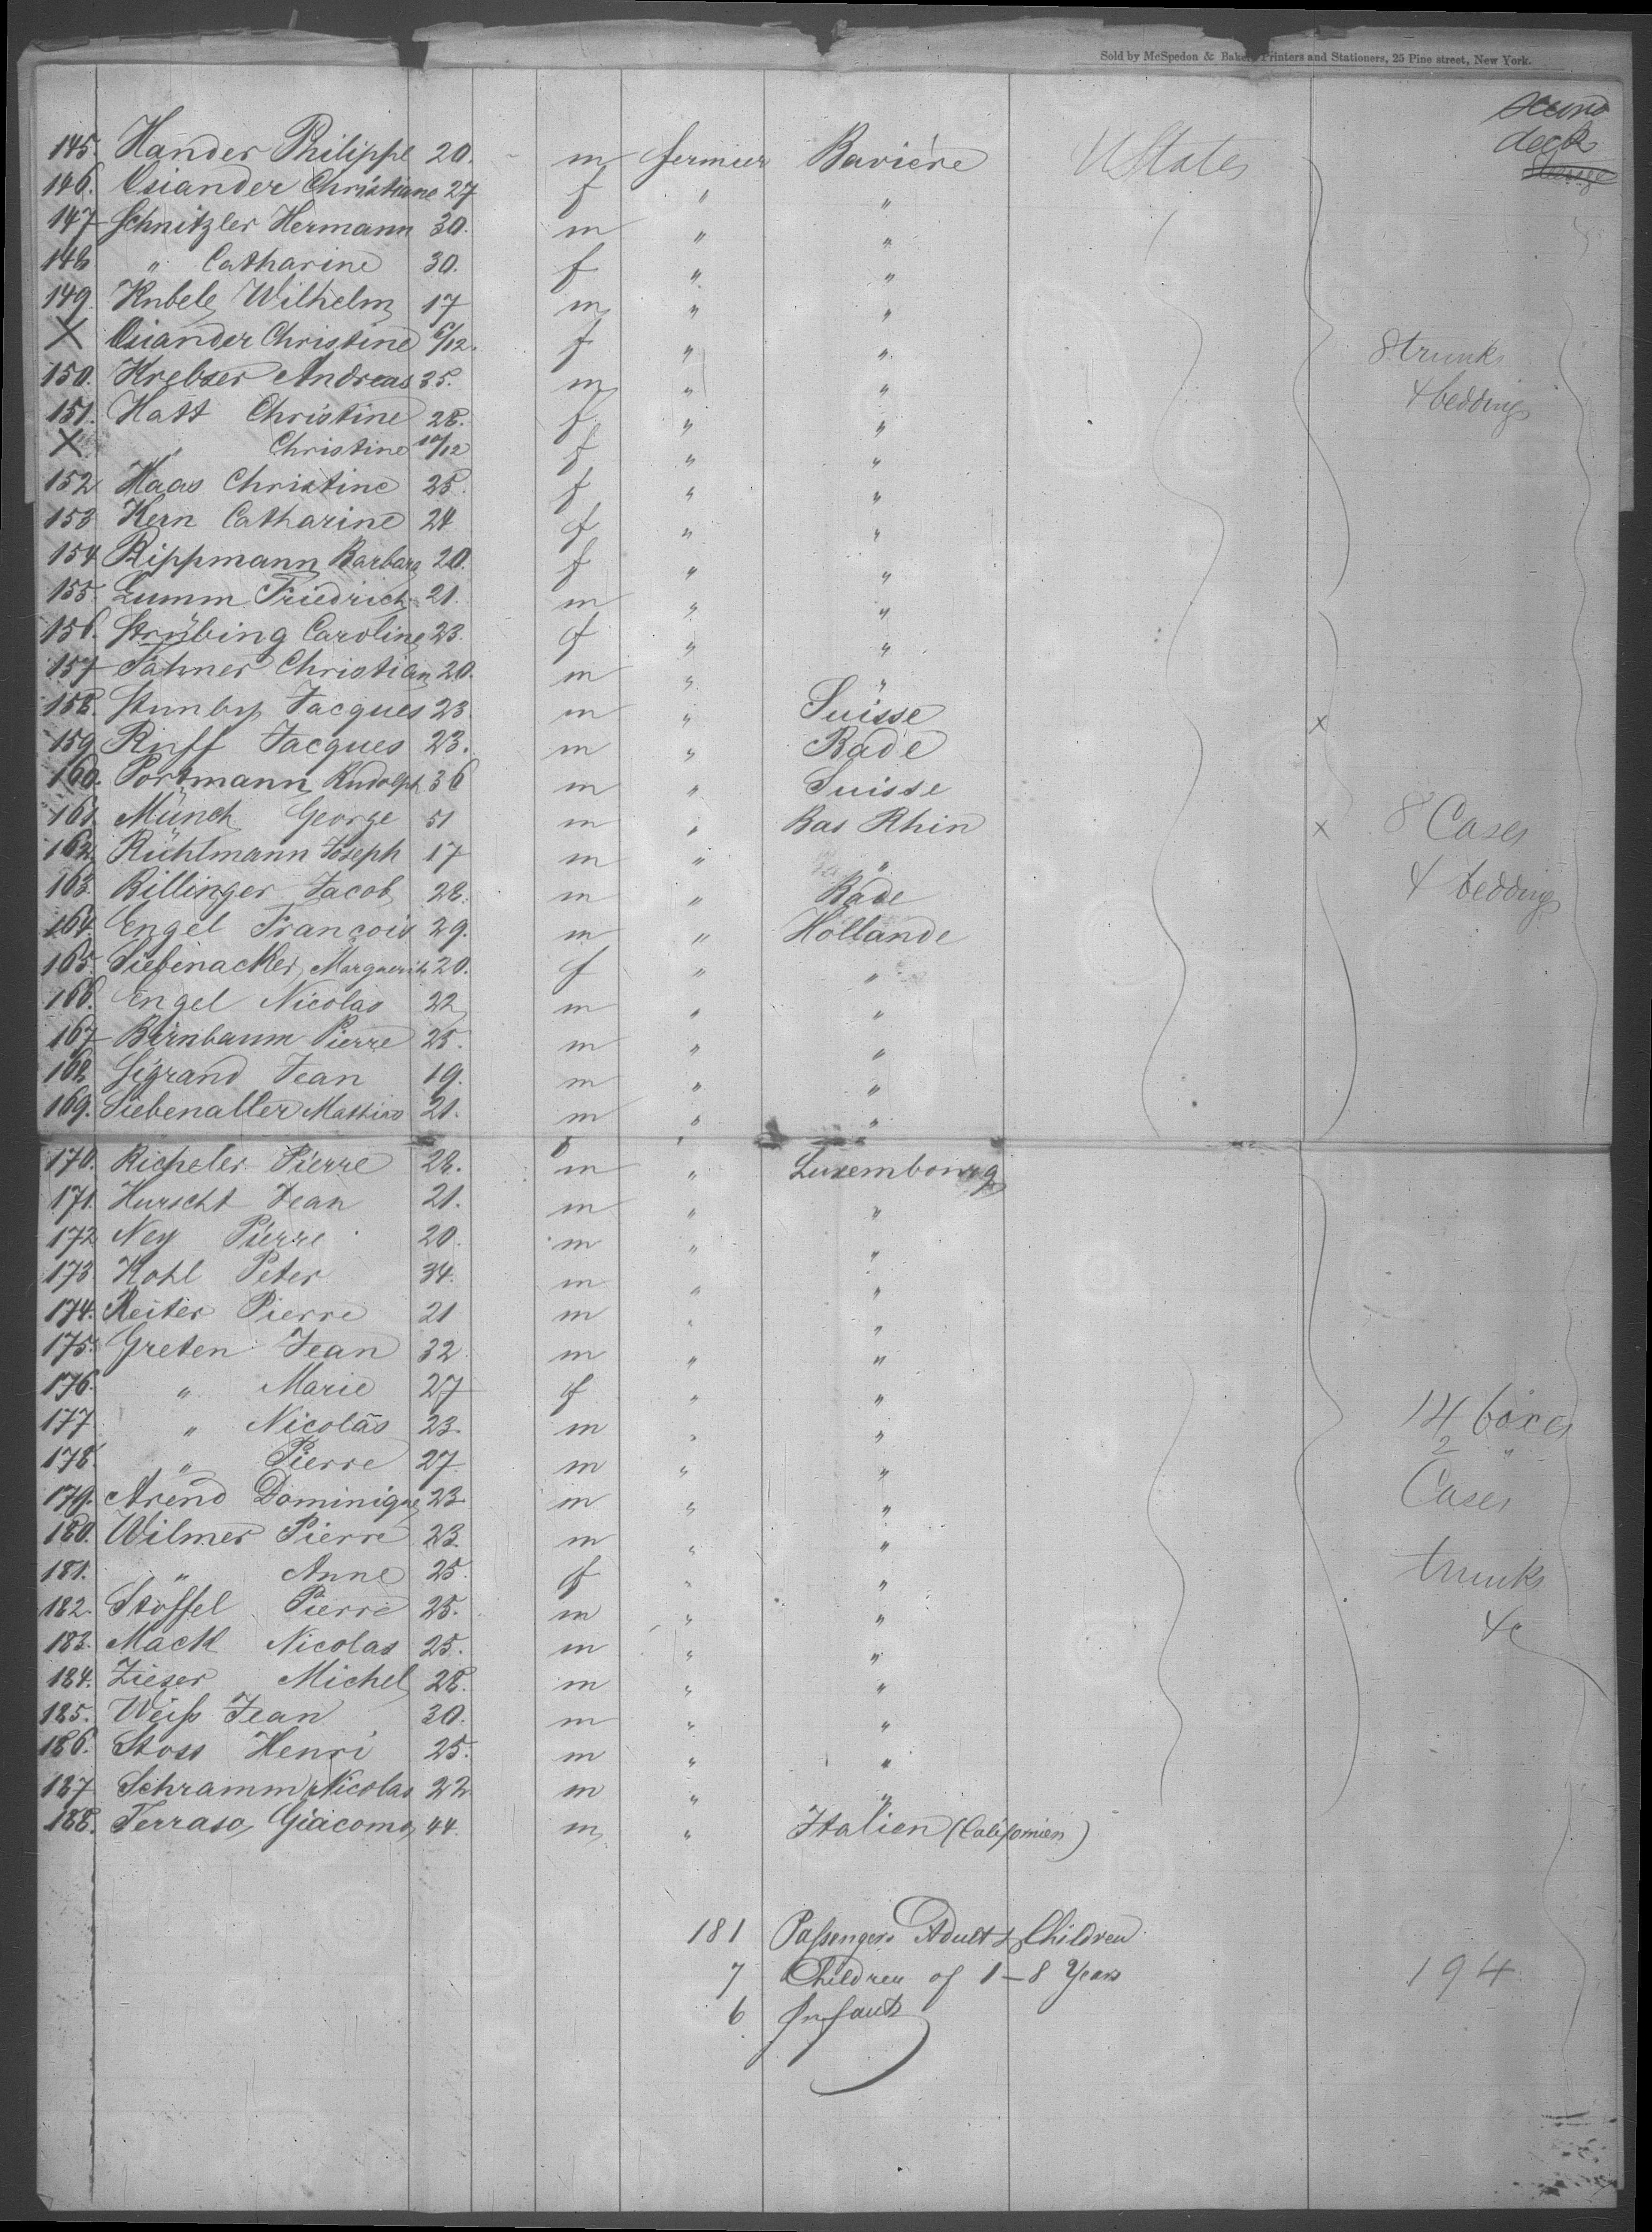 Sold by McSpedon & Baker, Printers and Stationers, 25 Pine street, New York.
second
deck
145. Hander Philippe 20. m fermier Bavière U States
146. Osiander Christiane 27 f " "
147 Schnitzler Hermann 30. m " "
148 " Catharine 30. f " "
149 Knbele Wilhelm 17 m " "
X Osiander Christine 6/12. f " "
150. Krebser Andreas 35. m " " 8 trunks
151. Hatt Christine 28. f " " 4 bedding
X " Christine 10/12 f " "
152 Haas Christine 25. f " "
153 Kern Catharine 24 f " "
154 Rippmann Barbara 20. f " "
155. Lumm Friedrich 21. m " "
156. Strübing Caroline 23. f " "
157 Sahner Christian 20. m " "
158. Stunby Jacques 23 m " Suisse x
159 Ruff Jacques 23. m " Bade
160. Portmann Rudolph 36 m " Suisse
161 Münch George 51 m " Bas Rhin x 8 Cases
162 Rühlmann Joseph 17 m " "
163. Billinger Jacob 28. m " Bade 4 bedding
164. Engel François 29. m " Hollande
165. Siebenacker Marguerite 20. f " "
166. Engel Nicolas 22 m " "
167 Birnbaum Pierre 25. m " "
168 Sigrand Jean 19. m " "
169. Siebenaller Mathias 21. m " "
170. Richeler Pierre 28. m " Luxembourg
171. Hurscht Jean 21. m " "
172 Ney Pierre 20. m " "
173 Kohl Peter 34. m " "
174. Reiter Pierre 21 m " "
175. Greten Jean 32 m " "
176. " Marie 27 f " "
177 " Nicolas 23. m " " 14 boxes
178. " Pierre 27 m " " 2 "
179. Arend Dominique 23 m " " Cases
180. Wilmes Pierre 23. m " "
181. " Anne 25. f " " trunks
182. Stoffel Pierre 25. m " " &c
183. Mack Nicolas 25. m " "
184. Zieser Michel 28. m " "
185. Weiß Jean 30. m " "
186. Stoss Henri 25. m " "
187 Schramm Nicolas 22 m " "
188. Terraso Giacomo 44. m " Italien (Californien)
181 Passengers Adult & Children
7 Children of 1-8 Years 194
6 Infants